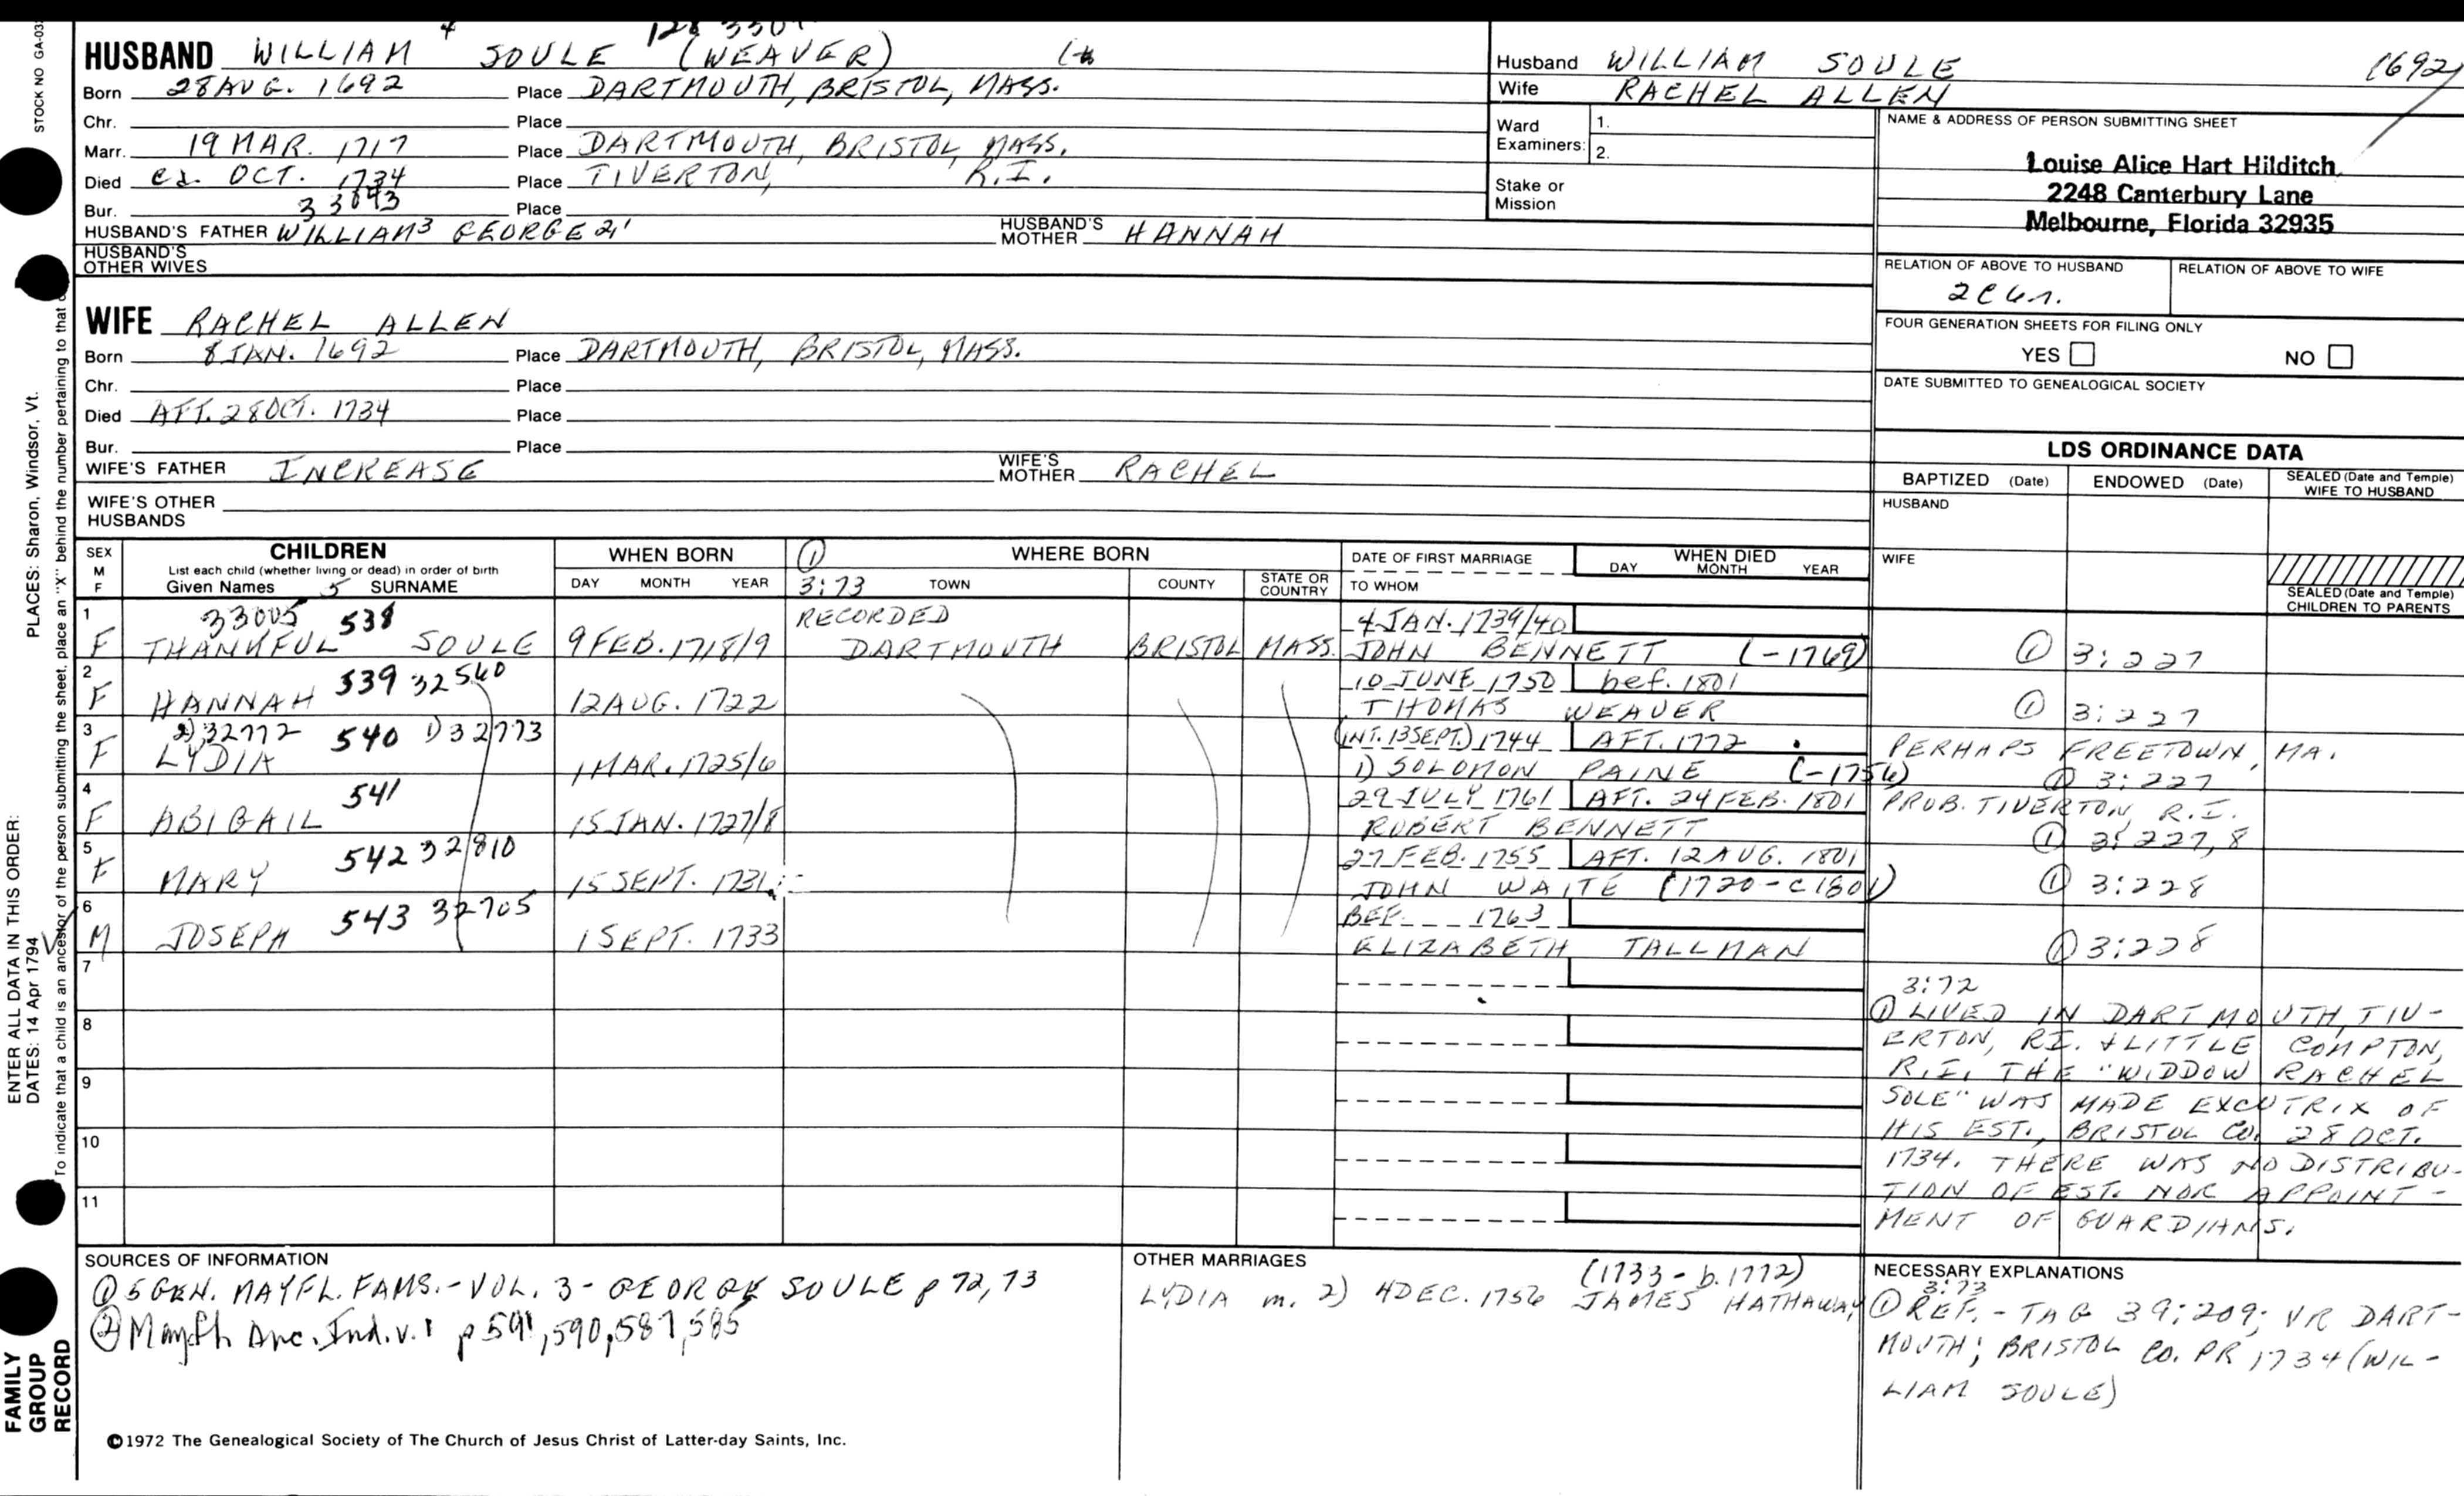 STOCK NO GA-03
HUSBAND WILLIAM 4 SOULE (WEAVER)
Born 28 AUG. 1692 Place DARTMOUTH, BRISTOL, MASS.
Chr. Place
Marr. 19 MAR. 1717 Place DARTMOUTH, BRISTOL, MASS.
Died ca. OCT. 1734 Place TIVERTON, R.I.
Bur. Place
HUSBAND'S FATHER WILLIAM3 GEORGE 2,1 HUSBAND'S MOTHER HANNAH
HUSBAND'S OTHER WIVES
WIFE RACHEL ALLEN
Born 8 JAN. 1692 Place DARTMOUTH, BRISTOL, MASS.
Chr. Place
Died AFT. 28 OCT. 1734 Place
Bur. Place
WIFE'S FATHER INCREASE WIFE'S MOTHER RACHEL
WIFE'S OTHER HUSBANDS
Husband WILLIAM SOULE 1692
Wife RACHEL ALLEN
Ward Examiners: 1.
2.
Stake or Mission
NAME & ADDRESS OF PERSON SUBMITTING SHEET
Louise Alice Hart Hilditch
2248 Canterbury Lane
Melbourne, Florida 32935
RELATION OF ABOVE TO HUSBAND RELATION OF ABOVE TO WIFE
FOUR GENERATION SHEETS FOR FILING ONLY
YES NO
DATE SUBMITTED TO GENEALOGICAL SOCIETY
LDS ORDINANCE DATA
BAPTIZED (Date) ENDOWED (Date) SEALED (Date and Temple) WIFE TO HUSBAND
HUSBAND
WIFE
SEALED (Date and Temple) CHILDREN TO PARENTS
SEX M F CHILDREN WHEN BORN ① WHERE BORN DATE OF FIRST MARRIAGE WHEN DIED
List each child (whether living or dead) in order of birth
Given Names 5 SURNAME DAY MONTH YEAR 3:73 TOWN COUNTY STATE OR COUNTRY TO WHOM DAY MONTH YEAR
1 33005 538 RECORDED 4 JAN. 1739/40
F THANKFUL SOULE 9 FEB. 1718/9 DARTMOUTH BRISTOL MASS. JOHN BENNETT (-1769) ① 3:227
2 539 32560 10 JUNE 1750 bef. 1801
F HANNAH 12 AUG. 1722 THOMAS WEAVER ① 3:227
3 2) 32772 540 1) 32773 (INT. 13 SEPT.) 1744 AFT. 1772 PERHAPS FREETOWN, MA.
F LYDIA 1 MAR. 1725/6 1) SOLOMON PAINE (-1756) ① 3:227
4 541 29 JULY 1761 AFT. 24 FEB. 1801 PROB. TIVERTON, R.I.
F ABIGAIL 15 JAN. 1727/8 ROBERT BENNETT ① 3:227,8
5 542 32810 27 FEB. 1755 AFT. 12 AUG. 1801
F MARY 15 SEPT. 1731 JOHN WAITE (1720-c1801) ① 3:228
6 543 32705 BEF. 1763
M JOSEPH 1 SEPT. 1733 ELIZABETH TALLMAN ① 3:228
7
8
9
10
11
3:72
① LIVED IN DARTMOUTH, TIV-
ERTON, RI. & LITTLE COMPTON,
R.I. THE "WIDDOW RACHEL
SOLE" WAS MADE EXCUTRIX OF
HIS EST., BRISTOL CO. 28 OCT.
1734. THERE WAS NO DISTRIBU-
TION OF EST. NOR APPOINT-
MENT OF GUARDIANS.
SOURCES OF INFORMATION
① 5 GEN. MAYFL. FAMS. - VOL. 3 - GEORGE SOULE p 72, 73
② Mayfl. Anc. Ind. v. 1 p 591, 590, 587, 585
©1972 The Genealogical Society of The Church of Jesus Christ of Latter-day Saints, Inc.
OTHER MARRIAGES
(1733 - b. 1772)
LYDIA m. 2) 4 DEC. 1756 JAMES HATHAWAY
NECESSARY EXPLANATIONS
3:73
① REF. - TAG 39:209; VR DART-
MOUTH; BRISTOL CO. PR 1734 (WIL-
LIAM SOULE)
ENTER ALL DATA IN THIS ORDER:
DATES: 14 Apr 1794 PLACES: Sharon, Windsor, Vt.
To indicate that a child is an ancestor of the person submitting the sheet, place an "X" behind the number pertaining to that
FAMILY GROUP RECORD